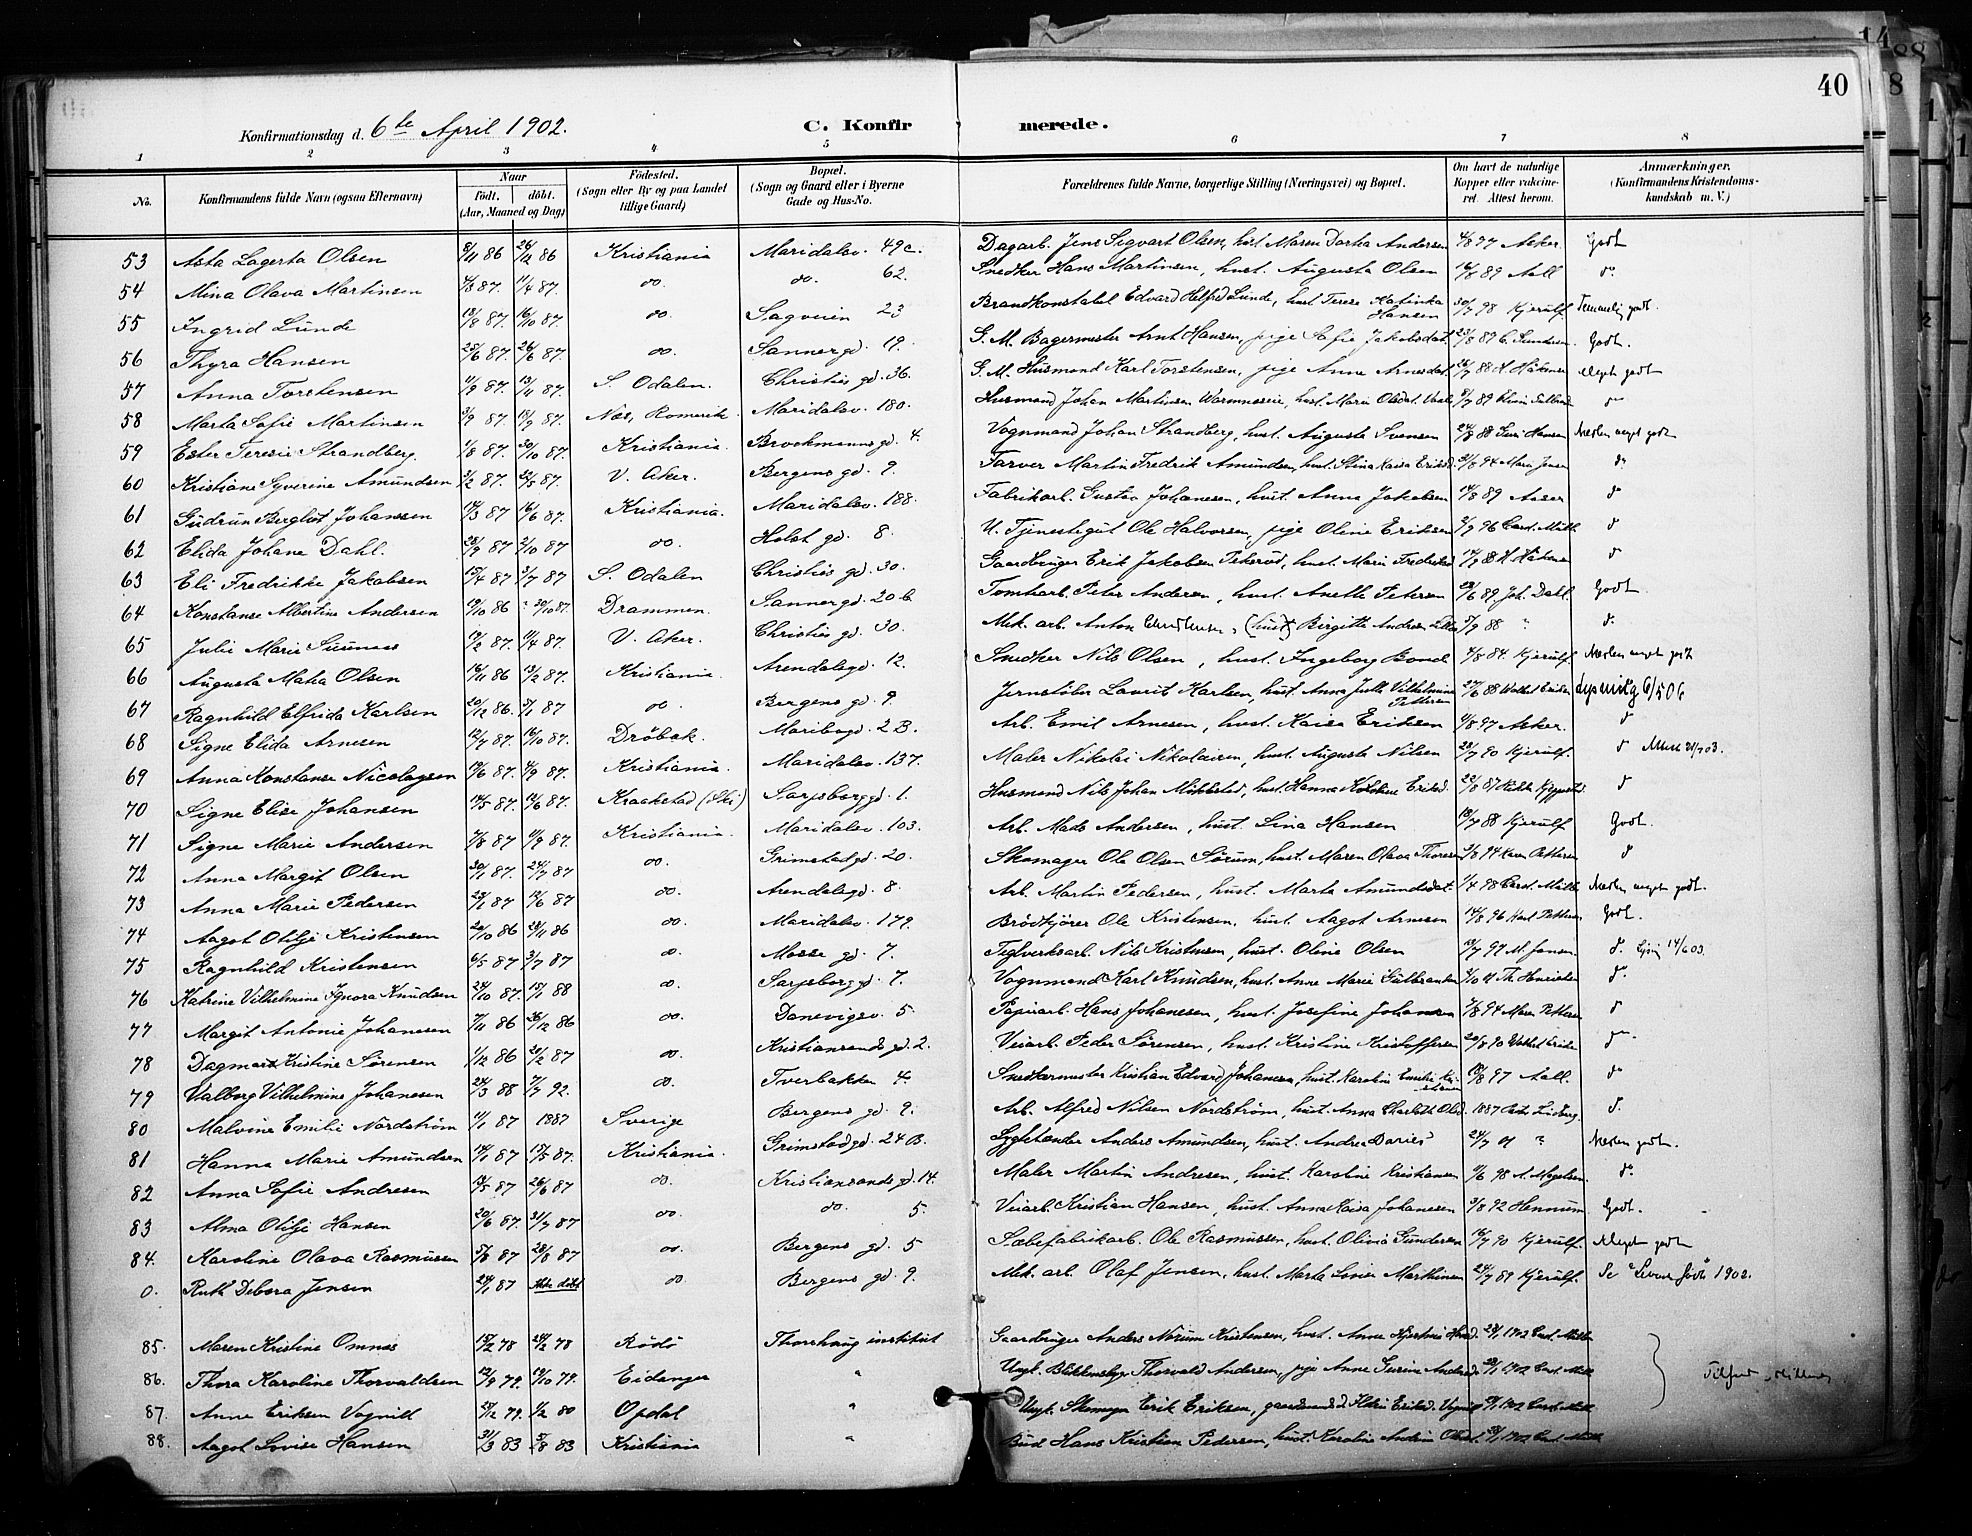 14
88
8
40
Konfirmationsdag d. 6te April 1902. C. Konfirmerede.
1 2 3 4 5 6 7 8
No. Konfirmandens fulde Navn (ogsaa Efternavn) Naar født. døbt. (Aar, Maaned og Dag) Fødested. (Sogn eller By og paa Landet tillige Gaard) Bopæl. (Sogn og Gaard eller i Byerne Gade og Hus-No. Forældrenes fulde Navne, borgerlige Stilling (Næringsvei) og Bopæl. Om havt de naturlige Kopper eller vakcineret. Attest herom. Anmærkninger. (Konfirmandens Kristendomskundskab m. V.)
53 Asta Lagerta Olsen 8/11 86 26/12 86 Kristiania Maridalsv. 49c. Dagarb. Jens Sigvart Olsen, hust. Maren Dorthea Andersen 4/8 97 Asker Godt
54 Mina Olava Martinsen 4/8 87. 11/4 87. do. do. 62. Snedker Hans Martinsen, hust. Augusta Olsen 14/8 89 Aall do.
55 Ingrid Lunde 13/8 87. 16/10 87. do. Sagveien 23 Brandkonstabel Edvard Helfred Lunde, hust. Terese Katinka Hansen 30/7 98 Kjerulf Temmelig godt.
56 Thyra Hansen 25/6 87. 26/6 87. do. Sannergd. 19. G. M. Bagermester Arnt Hansen, pige Sofie Jakobsdat. 23/8 89 Godt.
57 Anna Torstensen 4/9 87. 13/11 87. S. Odalen. Christies gd. 36. G. M. Husmand Karl Torstensen, pige Anne Arnesdat. 26/7 88 Meget godt
58 Marta Sofie Martinsen 3/9 87. 18/9 87. Næs, Romerik. Maridalsv. 180. Husmand Johan Martinsen hust. Marie Olsdat. 8/7 89 do
59 Ester Teresie Strandberg. 1/8 87. 30/10 87. Kristiania. Brochmanns gd. 4. Vognmand Johan Strandberg, hust. Augusta Svensen 24/8 88 Hansen Næsten meget godt
60 Kristiane Syverine Amundsen 3/2 87. 22/5 87. V. Aker. Bergens gd. 9. Farver Martin Fredrik Amundsen, hust. Stina Kaisa Eriksd. 31/8 94 Maria Jensen do
61 Gudrun Bergliot Johansen 14/3 87 16/6 87. Kristiania. Maridalsv. 188. Fabrikarb. Gustav Johanesen, hust. Anna Jakobsen 14/8 89 do
62 Elida Johane Dahl. 25/9 87. 2/10 87 do. Holst gd. 8. U. Tjenestegut Ole Halvorsen, pige Oline Eriksen 2/9 96 do
63 Eli Fredrikke Jakobsen 15/4 87 3/7 87 S. Odalen Christies gd. 30. Gaardbruger Erik Jakobsen hust. Marie 14/9 88 do
64 Konstanse Albertine Andersen 19/10 86 30/10 87. Drammen. Sannergd. 20 b Tomtarb. Peter Andersen, hust. Anette Petersen 29/6 89. Joh. Dahl. Godt.
65 Julie Marie 19/2 87. 11/4 87. V. Aker. Christies gd. 30. Mek. arb. Anton (hust) Birgitte Andrea 3/9 88 " do.
66 Augusta Matea Olsen 16/11 86 13/2 87. Kristiania. Arendalsgd. 12. Snedker Nils Olsen, hust. Ingeborg Bond. 4/8 84. Kjerulf Næsten meget godt
67 Ragnhild Elfrida Karlsen 20/12 86. 3/1 87 do. Bergens gd. 9. Jernstøber Laurit Karlsen, hust. Anna Julie Vilhelmine Pettersen 27/6 88 6/5 06
68 Signe Elida Arnesen 12/7 87. 16/10 87. Drøbak. Maribogd. 2 B. Arb. Emil Arnesen, hust. Kaisa Eriksen 4/8 97 Asker do
69 Anna Konstanse Nicolaysen 19/6 87. 4/9 87. Kristiania. Maridalsv. 137. Maler Nikolai Nikolaisen, hust. Augusta Nilsen 28/7 90 Kjerulf. do Attest 21/7 03.
70 Signe Elise Johansen 14/5 87. 12/6 87. Kraakstad (Ski) Sarpsborggd. 1. Husmand Nils Johan hust. Hanna 22/8 87 do
71 Signe Marie Andersen 7/8 87 11/9 87. Kristiania. Maridalsv. 103. Arb. Mads Andersen, hust. Lina Hansen 13/7 88 Kjerulf Godt.
72 Anna Margit Olsen 30/1 87. 24/7 87 do. Grimstadgd. 20. Skomager Ole Olsen Sørum, hust. Maren Olava Thoresen 3/8 94 Karen Pettersen do
73 Anna Marie Pedersen 23/1 87 12/6 87 do. Arendalsgd. 8. Arb. Martin Pedersen, hust. Marte Amundsdat. 1/4 98 Næsten meget godt.
74 Aagot Otilje Kristensen 20/10 86 29/11 86 do. Maridalsv. 179. Brødkjører Ole Kristensen, hust. Aagot Arnesen 14/8 96 Godt.
75 Ragnhild Kristensen 6/5 87 3/7 87 do. Mosse gd. 7. Teglverksarb. Nils Kristensen, hust. Oline Olsen 13/7 97 M. Jansen do. 14/6 03.
76 Katrine Vilhelmine Ignora Knudsen 24/10 87. 15/1 88 do. Sarpsborggd. 7. Vognmand Karl Knudsen, hust. Anne Marie Gulbrandsen Th. Henriksen do.
77 Margit Antonie Johanesen 7/11 86 26/12 86 do. Danevigsv. 5. Papirarb. Hans Johanesen, hust. Josefine Johansen 7/8 94 Maren Pettersen do
78 Dagmar Kristine Sørensen 1/12 86 21/2 87 do. Kristiansands gd. 2. Veiarb. Peder Sørensen, hust. Kristine Kristoffersen 20/8 90 do
79 Valborg Vilhelmine Johanesen 24/3 88 7/7 92. do. Tverbakken 4. Snedkermester Kristian Edvard Johanesen, hust. Karoline Emilie 18/8 97 Aall. do
80 Malvine Emilie Nordstrøm 11/1 87 1887 Sverige Bergens gd. 9. Arb. Alfred Nilsen Nordstrøm, hust. Anna Charlotte Olsd. 1887 do.
81 Hanna Marie Amundsen 14/1 87 15/5 87. Kristiania. Grimstadgd. 24 B. Lygtetænder Anders Amundsen, hust. Andrea Davies 24/7 01 " Næsten godt.
82 Anna Sofie Andresen 14/5 87 26/6 87 do. Kristiansands gd. 14. Maler Martin Andresen, hust. Karoline Kristiansen 11/6 98 A. Magelsen do.
83 Alma Otilje Hansen 20/6 87. 31/7 87 do. do. 5. Veiarb. Kristian Hansen, hust. Anna Kaisa Johanesen 3/8 92 Hennum Godt.
84. Karoline Olava Rasmussen 5/8 87 28/8 87 do. Bergens gd. 5 Sæbefabrikarb. Ole Rasmussen, hust. Olivia Gundersen 16/7 90 Kjerulf. Meget godt
0. Ruth Debora Jensen 24/1 87 Ikke døbt do. Bergens gd. 9. Mek. arb. Olaf Jensen, hust. Marta Lovise Marthinsen 24/7 89 Kjerulf. Se 1902.
85. Maren Kristine Omnæs 15/2 78 24/2 78 Rødø Thorshaug institut Gaardbruger Anders Norum Kristensen, hust. Anne 28/1 1902
86. Thora Karoline Thorvaldsen 12/9 79. 19/10 79. Eidanger " Ugt. Thorvald Andersen, pige Anne Gurine 28/1 1902
87. Anne Eriksen Vognild 21/12 79. 1/2 80 Opdal " Ugt. Skomager Erik Eriksen, 1902
88. Aagot Lovise Hansen 31/3 83 5/8 83 Kristiania " Bud Hans Kristian Pedersen, hust. Karoline 28/1 1902